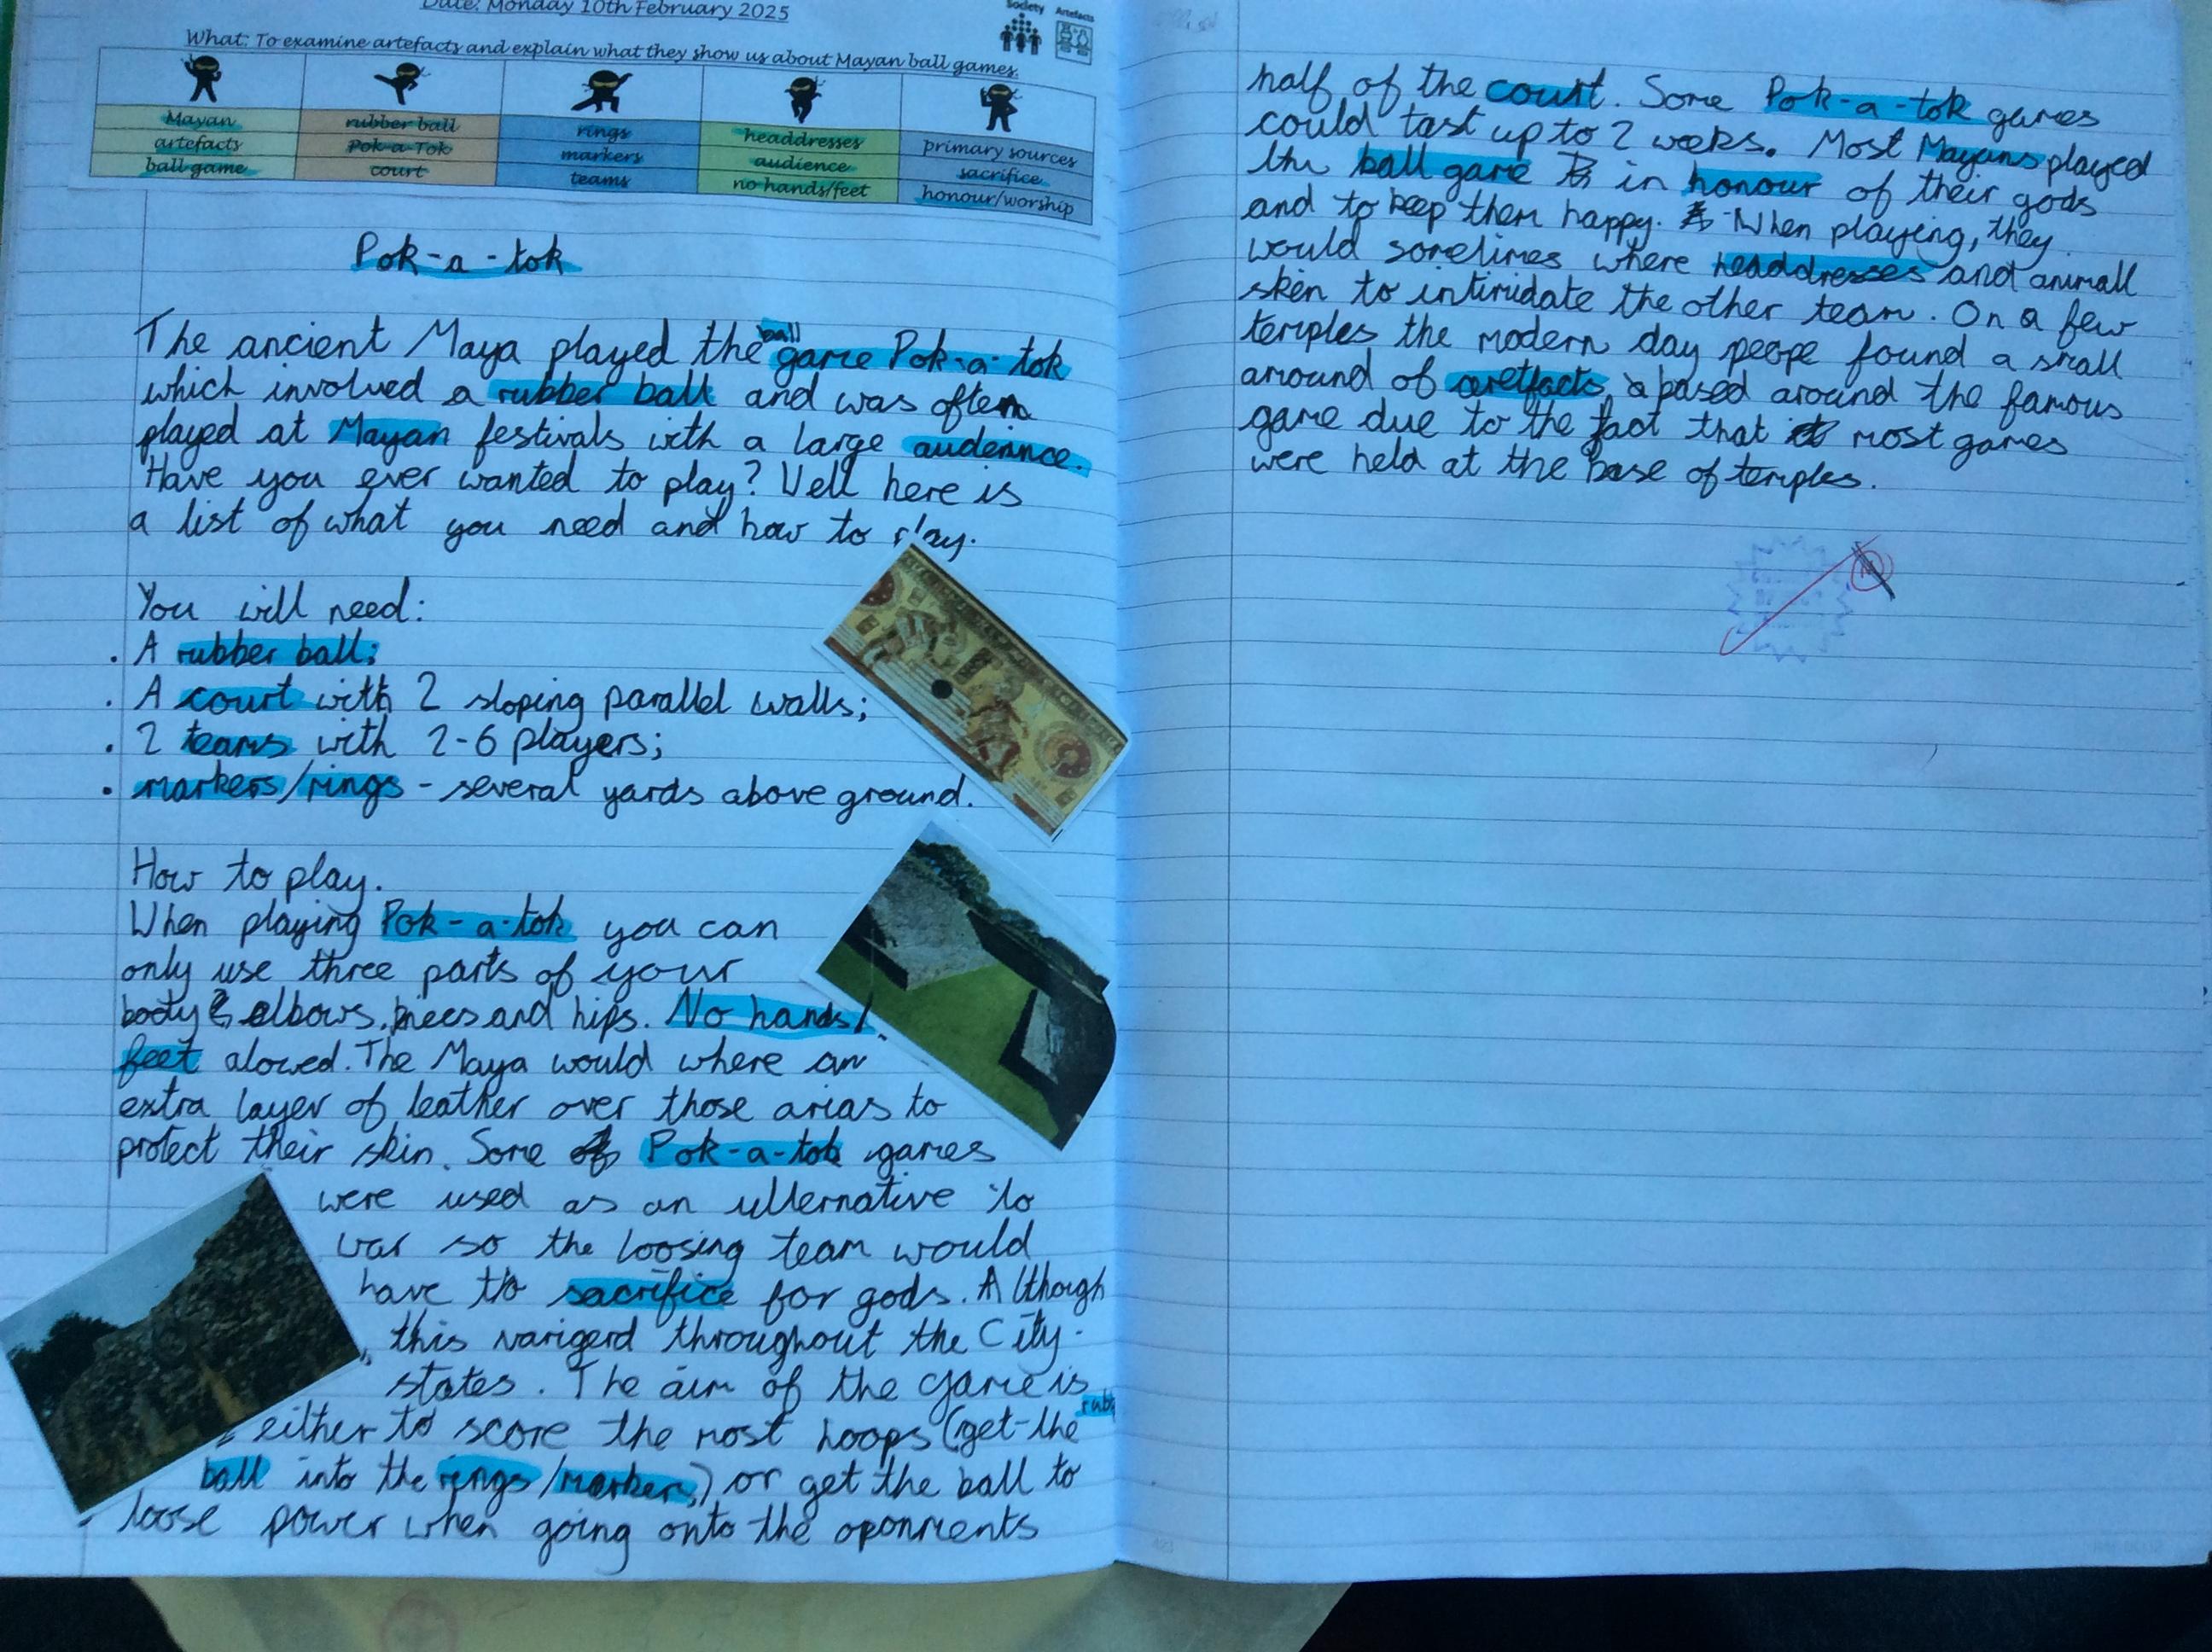 Date: Monday 10th February 2025
Society Artefacts
What: To examine artefacts and explain what they show us about Mayan ball games.
Mayan rubber ball rings headdresses primary sources
artefacts Pok-a-Tok markers audience sacrifice
ball game court teams no hands/feet honour/worship
Pok-a-tok
The ancient Maya played the ball game Pok-a-tok
which involved a rubber ball and was often
played at Mayan festivals with a large audeince.
Have you ever wanted to play? Well here is
a list of what you need and how to play.
You will need:
. A rubber ball;
. A court with 2 sloping parallel walls;
. 2 teams with 2-6 players;
. markers/rings - several yards above ground.
How to play.
When playing Pok-a-tok you can
only use three parts of your
body elbows, knees and hips. No hands/
feet alowed. The Maya would where an
extra layer of leather over those arias to
protect their skin. Some Pok-a-tok games
were used as an ulternative to
war so the loosing team would
have to sacrifice for gods. Although
this varigerd throughout the City-
states. The aim of the game is
either to score the most hoops (get the
ball into the rings/markers) or get the ball to
loose power when going onto the oponments
half of the court. Some Pok-a-tok games
could tast up to 2 weeks. Most Mayans played
the ball game in honour of their gods
and to keep them happy. When playing, they
would sometimes where headdresses and animall
sken to intimidate the other team. On a few
temples the modern day peope found a small
amound of aretfacts based around the famous
game due to the fact that most games
were held at the base of temples.